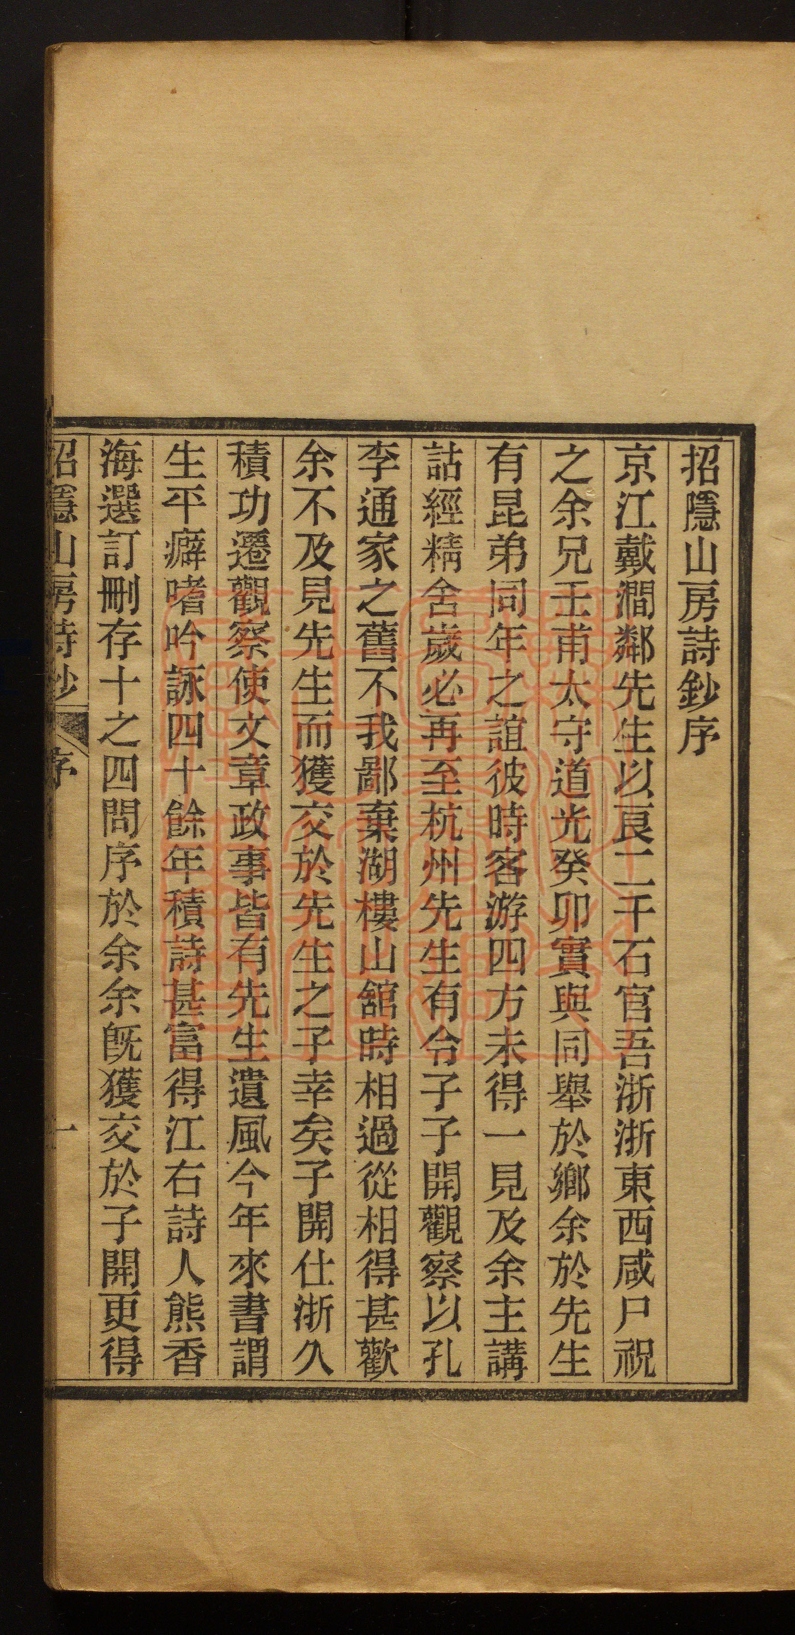 招隱山房詩鈔序
京江戴澗鄰先生以良二千石官吾浙浙東西咸尸祝
之余兄壬甫太守道光癸卯實與同舉於鄉余於先生
有昆弟同年之誼彼時客游四方未得一見及余主講
詁經精舍歲必再至杭州先生有令子子開觀察以孔
李通家之舊不我鄙棄湖樓山館時相過從相得甚歡
余不及見先生而獲交於先生之子幸矣子開仕浙久
積功遷觀察使文章政事皆有先生遺風今年來書謂
生平癖嗜吟詠四十餘年積詩甚富得江右詩人熊香
海選訂刪存十之四問序於余余既獲交於子開更得
招隱山房詩鈔 序 一